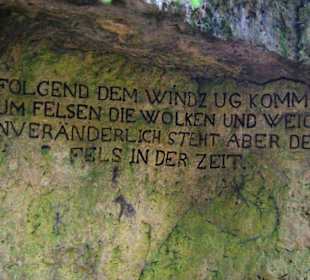 FOLGEND DEM WINDZUG KOMM
UM FELSEN DIE WOLKEN UND WEIC
NVERÄNDERLICH STEHT ABER DE
FELS IN DER ZEIT.